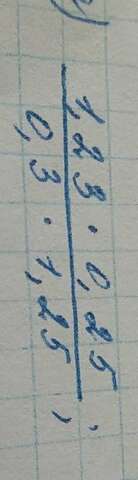 1,23 · 0,25
0,3 · 1,25 ;